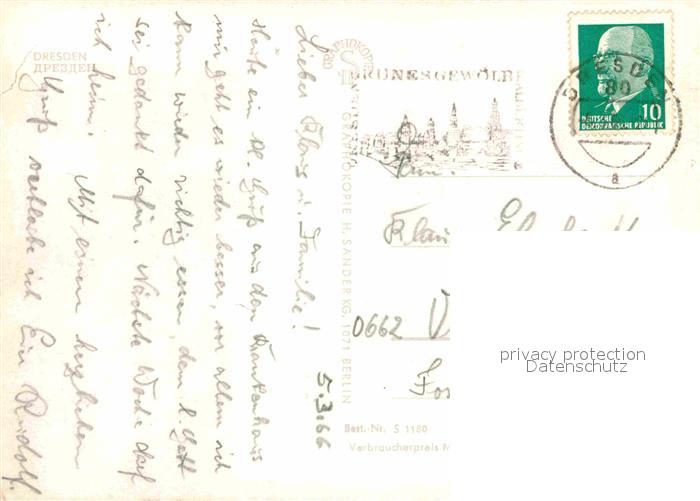 DRESDEN
ДРЕЗДЕН
5.3.66
Lieber Klaus u. Familie!
Heute ein kl. Gruß aus dem Krankenhaus
mir geht es wieder besser, vor allem ich
kann wieder richtig essen, dem l. Gott
sei gedankt dafür. Nächste Woche darf
ich heim. Mit einem herzlichen
Gruß verbleibe ich Euer Rudolf.
GRAPHOKOPIE
GRAPHOKOPIE H. SANDER KG, 1071 BERLIN
GRÜNES GEWÖLBE
DRESDEN
80
a
10
DEUTSCHE
DEMOKRATISCHE REPUBLIK
Klau
0662
Best.-Nr. S 1180
Verbraucherpreis M
privacy protection
Datenschutz